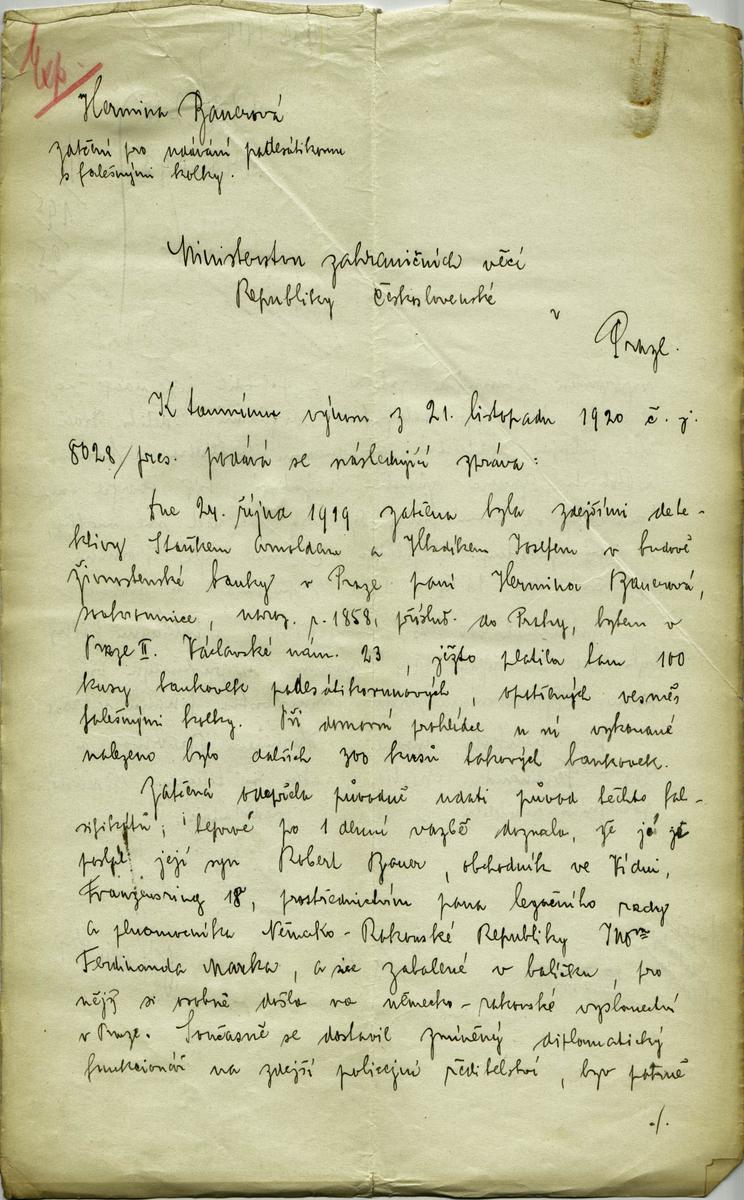 Exp.
Hermina Bauerová
zatčení pro udávání padesátikorun
s falešnými kolky.
Ministerstvu zahraničních věcí
Republiky Československé
v
Praze.
K tamnímu výnosu z 21. listopadu 1920 č. j.
8028/pres. podává se následující zpráva:
Dne 24. října 1919 zatčena byla zdejšími dete-
ktivy Staňkem Arnoldem a Hladíkem Josefem v budově
Živnostenské banky v Praze paní Hermina Bauerová,
soukromnice, naroz. r. 1858, přísluš. do Prahy, bytem v
Praze II. Václavské nám. 23, ježto platila tam 100
kusy bankovek padesátikorunových, opatřených vesměs
falešnými kolky. Při domovní prohlídce u ní vykonané
nalezeno bylo dalších 300 kusů takových bankovek.
Zatčená odepřela původně udati původ těchto fal-
sifikátů; teprve po 1 denní vazbě doznala, že je jí
poslal její syn Robert Bauer, obchodník ve Vídni,
Franzensring 18, prostřednictvím pana legačního rady
a plnomocníka Německo-Rakouské Republiky
Ferdinanda Marka, a sice zabalené v balíčku, pro
nějž si osobně došla na německo-rakouské vyslanectví
v Praze. Současně se dostavil zmíněný diplomatický
funkcionář na zdejší policejní ředitelství, byv patrně
./.